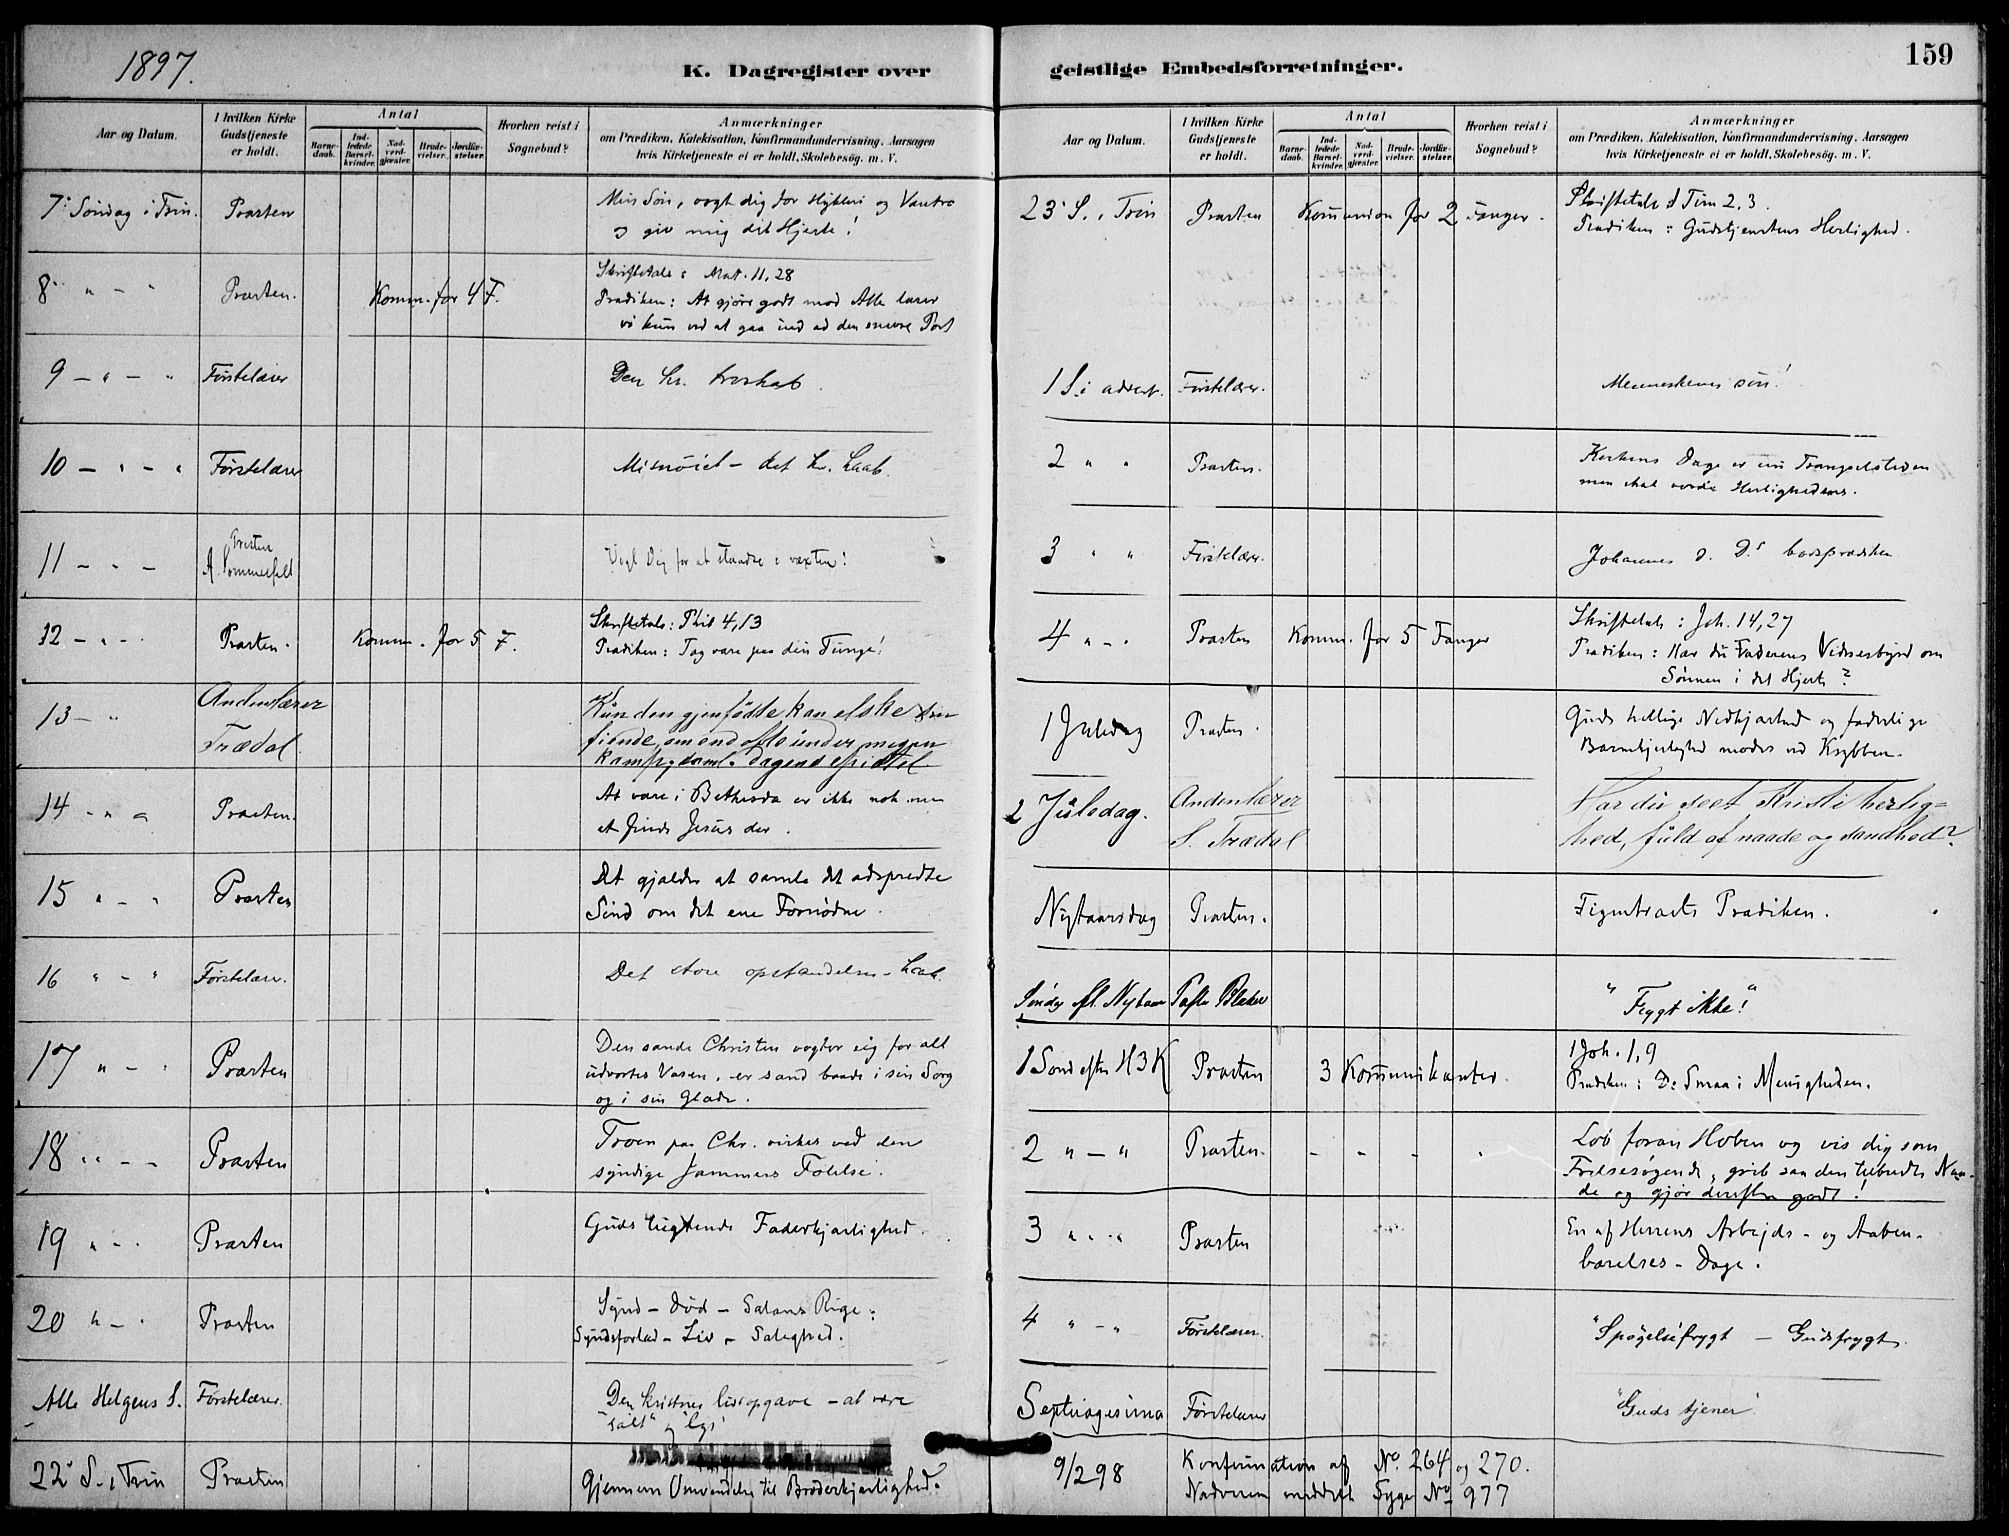 1897.
K. Dagregister over
Aar og Datum.
I hvilken Kirke Gudstjeneste er holdt.
Antal
Barne-daab.
Ind-ledede Barsel-kvinder.
Nad-verd-gjester.
Brude-vielser.
Jordfæ-stelser.
Hvorhen reist i Sognebud?
Anmærkninger
om Prædiken, Katekisation, Konfirmandundervisning, Aarsagen
hvis Kirketjeneste ei er holdt, Skolebesög. m. V.
7: Søndag i Trin. Præsten Min Søn, vogt dig for Hykleri og Vantro
og giv mig dit Hjerte!
8 " - " Præsten. Komm. for 4 F. Skriftetale: Mat. 11,28
Prædiken: At gjøre godt mod Alle lærer
vi kun ved at gaa ind ad den snevre Port
9 - " - " Førstelærer Den kr. troskab.
10 - " - " Førstelærer Misnøiet - det kr. haab.
11 - " - Presten
A. Sommerfelt Vogt Dig for at standse i væxten!
12 - " - Præsten. Komm. for 5 F. Skriftetale: Phil 4,13
Prædiken: Tag vare paa din Tunge!
13 - " Andenlærer
Trædal Kun den gjenfødte kan elske sin
fiende, om end ofte under megen
kamp; saml. dagens epistel.
14 - " " Præsten. At være i Bethesda er ikke nok men
at finde Jesus der.
15 " - " Præsten Det gjælder at samle det adspredte
Sind om det ene Fornødne.
16 " - " Førstelærer. Det store opstandelses-haab.
17 " - " Præsten Den sande Christen vogter sig for alt
udvortes Væsen, er sand baade i sin Sorg
og i sin Glæde.
18 " - - Præsten Troen paa Chr. virkes ved den
syndige Jammers Følelse.
19 " - " Præsten Guds tugtende Faderkjærlighed.
20 " - " Præsten Synd - Død - Satans Rige:
Syndsforlad - Liv - Salighed.
Alle Helgens S. Førstelærer. Den kristnes livsopgave - at være
"salt" og "lys"
22' S. i Trin Præsten Gjennem Omvendelse til Broderkjærlighed.
geistlige Embedsforretninger.
159
Aar og Datum.
I hvilken Kirke Gudstjeneste er holdt.
Antal
Barne-daab.
Ind-ledede Barsel-kvinder.
Nad-verd-gjester.
Brude-vielser.
Jordfæ-stelser.
Hvorhen reist i Sognebud?
Anmærkninger
om Prædiken, Katekisation, Konfirmandundervisning, Aarsagen
hvis Kirketjeneste ei er holdt, Skolebesög. m. V.
23' S. i Trin Præsten Kommunion for 2 Fanger. Skriftetale: Tim 2,3.
Prædiken: Gudstjenestens Herlighed.
1 S. i advent. Førstelærer. Menneskenes søn!
2 " " Præsten. Kirkens Dage er nu Trængselstiden
men skal vorde Herlighedens.
3 " " Førstelærer. Johannes d. D.s bodsprædiken
4 " - " Præsten Komm. for 5 Fanger Skriftetale: Joh. 14,27
Prædiken: Har du Faderens Vidnesbyrd om
Sønnen i dit Hjerte?
1 Juledag Præsten. Guds hellige Nidkjærhed og faderlige
Barmhjertighed mødes ved Krybben.
2 Juledag. Andenlærer
S. Trædal Har du seet Kristi herlig=
hed, fuld af naade og sandhed?
Nytaarsdag Præsten. Figentræets Prædiken.
Søndag ef. Nytaar "Frygt ikke!"
1 Sønd efter H3K Præsten 3 Kommunikanter. 1 Joh. 1,9
Prædiken: De Smaa i Menigheden.
2 " - " Præsten. - - - - Løb foran Hoben og vis dig som
Frelsesøgende, grib saa den tilbudte Naa-
de og gjør derefter godt!
3 " - " Præsten En af Herrens Arbejds- og Aaben-
barelses-Dage.
4 " - " Førstelærer. "Spøgelsefrygt - Gudsfrygt.
Septuagesima Førstelærer "Guds tjener"
9/2 98 Konfirmation af No. 264 og 270.
Nadveren meddelt Syge No 977